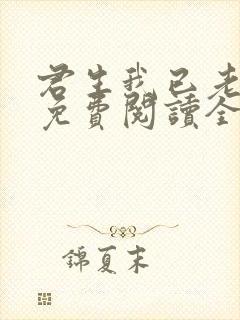 君生我已老
免費閱讀全
錦夏末